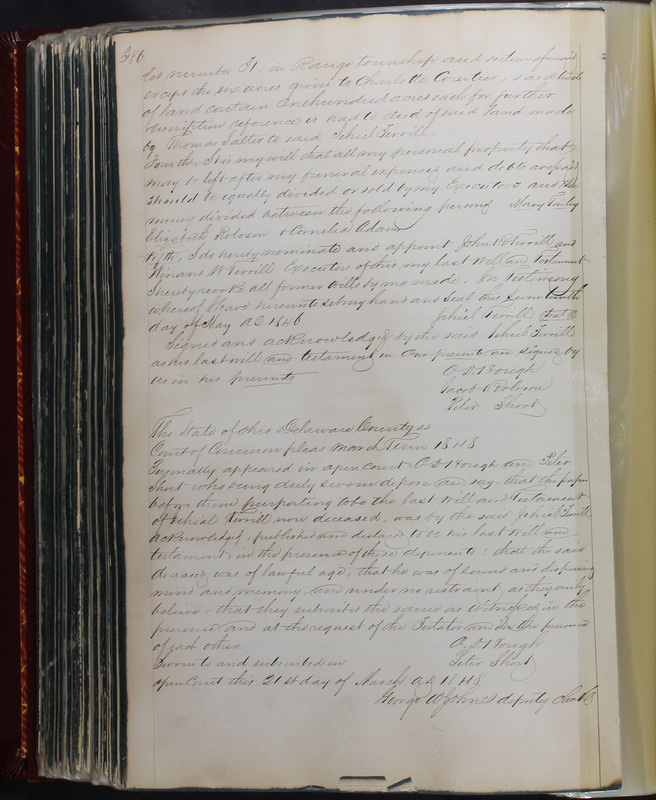 386
Lot number 31, in Range township and section aforesaid
except the six acres given to Charlotte Courter, said tracts
of land contain one hundred acres each for further
description reference is had to deed of said land made
by Thomas Salter to said Jehiel Terrill.
Fourth, It is my will that all my personal property that
may be left after my funeral expenses and debts are paid
should be equally divided or sold by my Executors and the
money divided between the following persons Mary Finley
Elizabeth Roloson & Cornelia Adams
Fifth, I do hereby nominate and appoint John R Terrill and
Winans W Terrill Executors of this my last Will and Testament
I hereby revoke all former Wills by me made. In Testimony
whereof I have hereunto set my hand and Seal this Seventeenth
day of May AD 1846 Jehiel Terrill
Signed and acknowledged by the said Jehiel Terrill
as his last will and testament in our presents and signed by
us in his presents
O. D. Hough
Jacob Roloson
Peter Short
The State of Ohio Delaware County ss
Court of Common pleas March Term 1848
Personally appeared in open court O. D. Hough and Peter
Short who being duly sworn depose and say, that the paper
before them purporting to be the last will and Testament
of Jehial Terrill now deceased, was by the said Jehiel Terrill
acknowledged, published and declared to be his last Will and
testament, in the presence of these deponents: that the said
deceased was of lawful age, that he was of sound and disposing
mind and memory, and under no restraint, as they verily
believe, that they subscribed the same as witnesses, in the
presence and at the request of the Testator and in the presence
of each other O. D. Hough
Sworn to and subscribed in Peter Short
open Court this 21st day of March AD 1848
George W Jones deputy Clerk